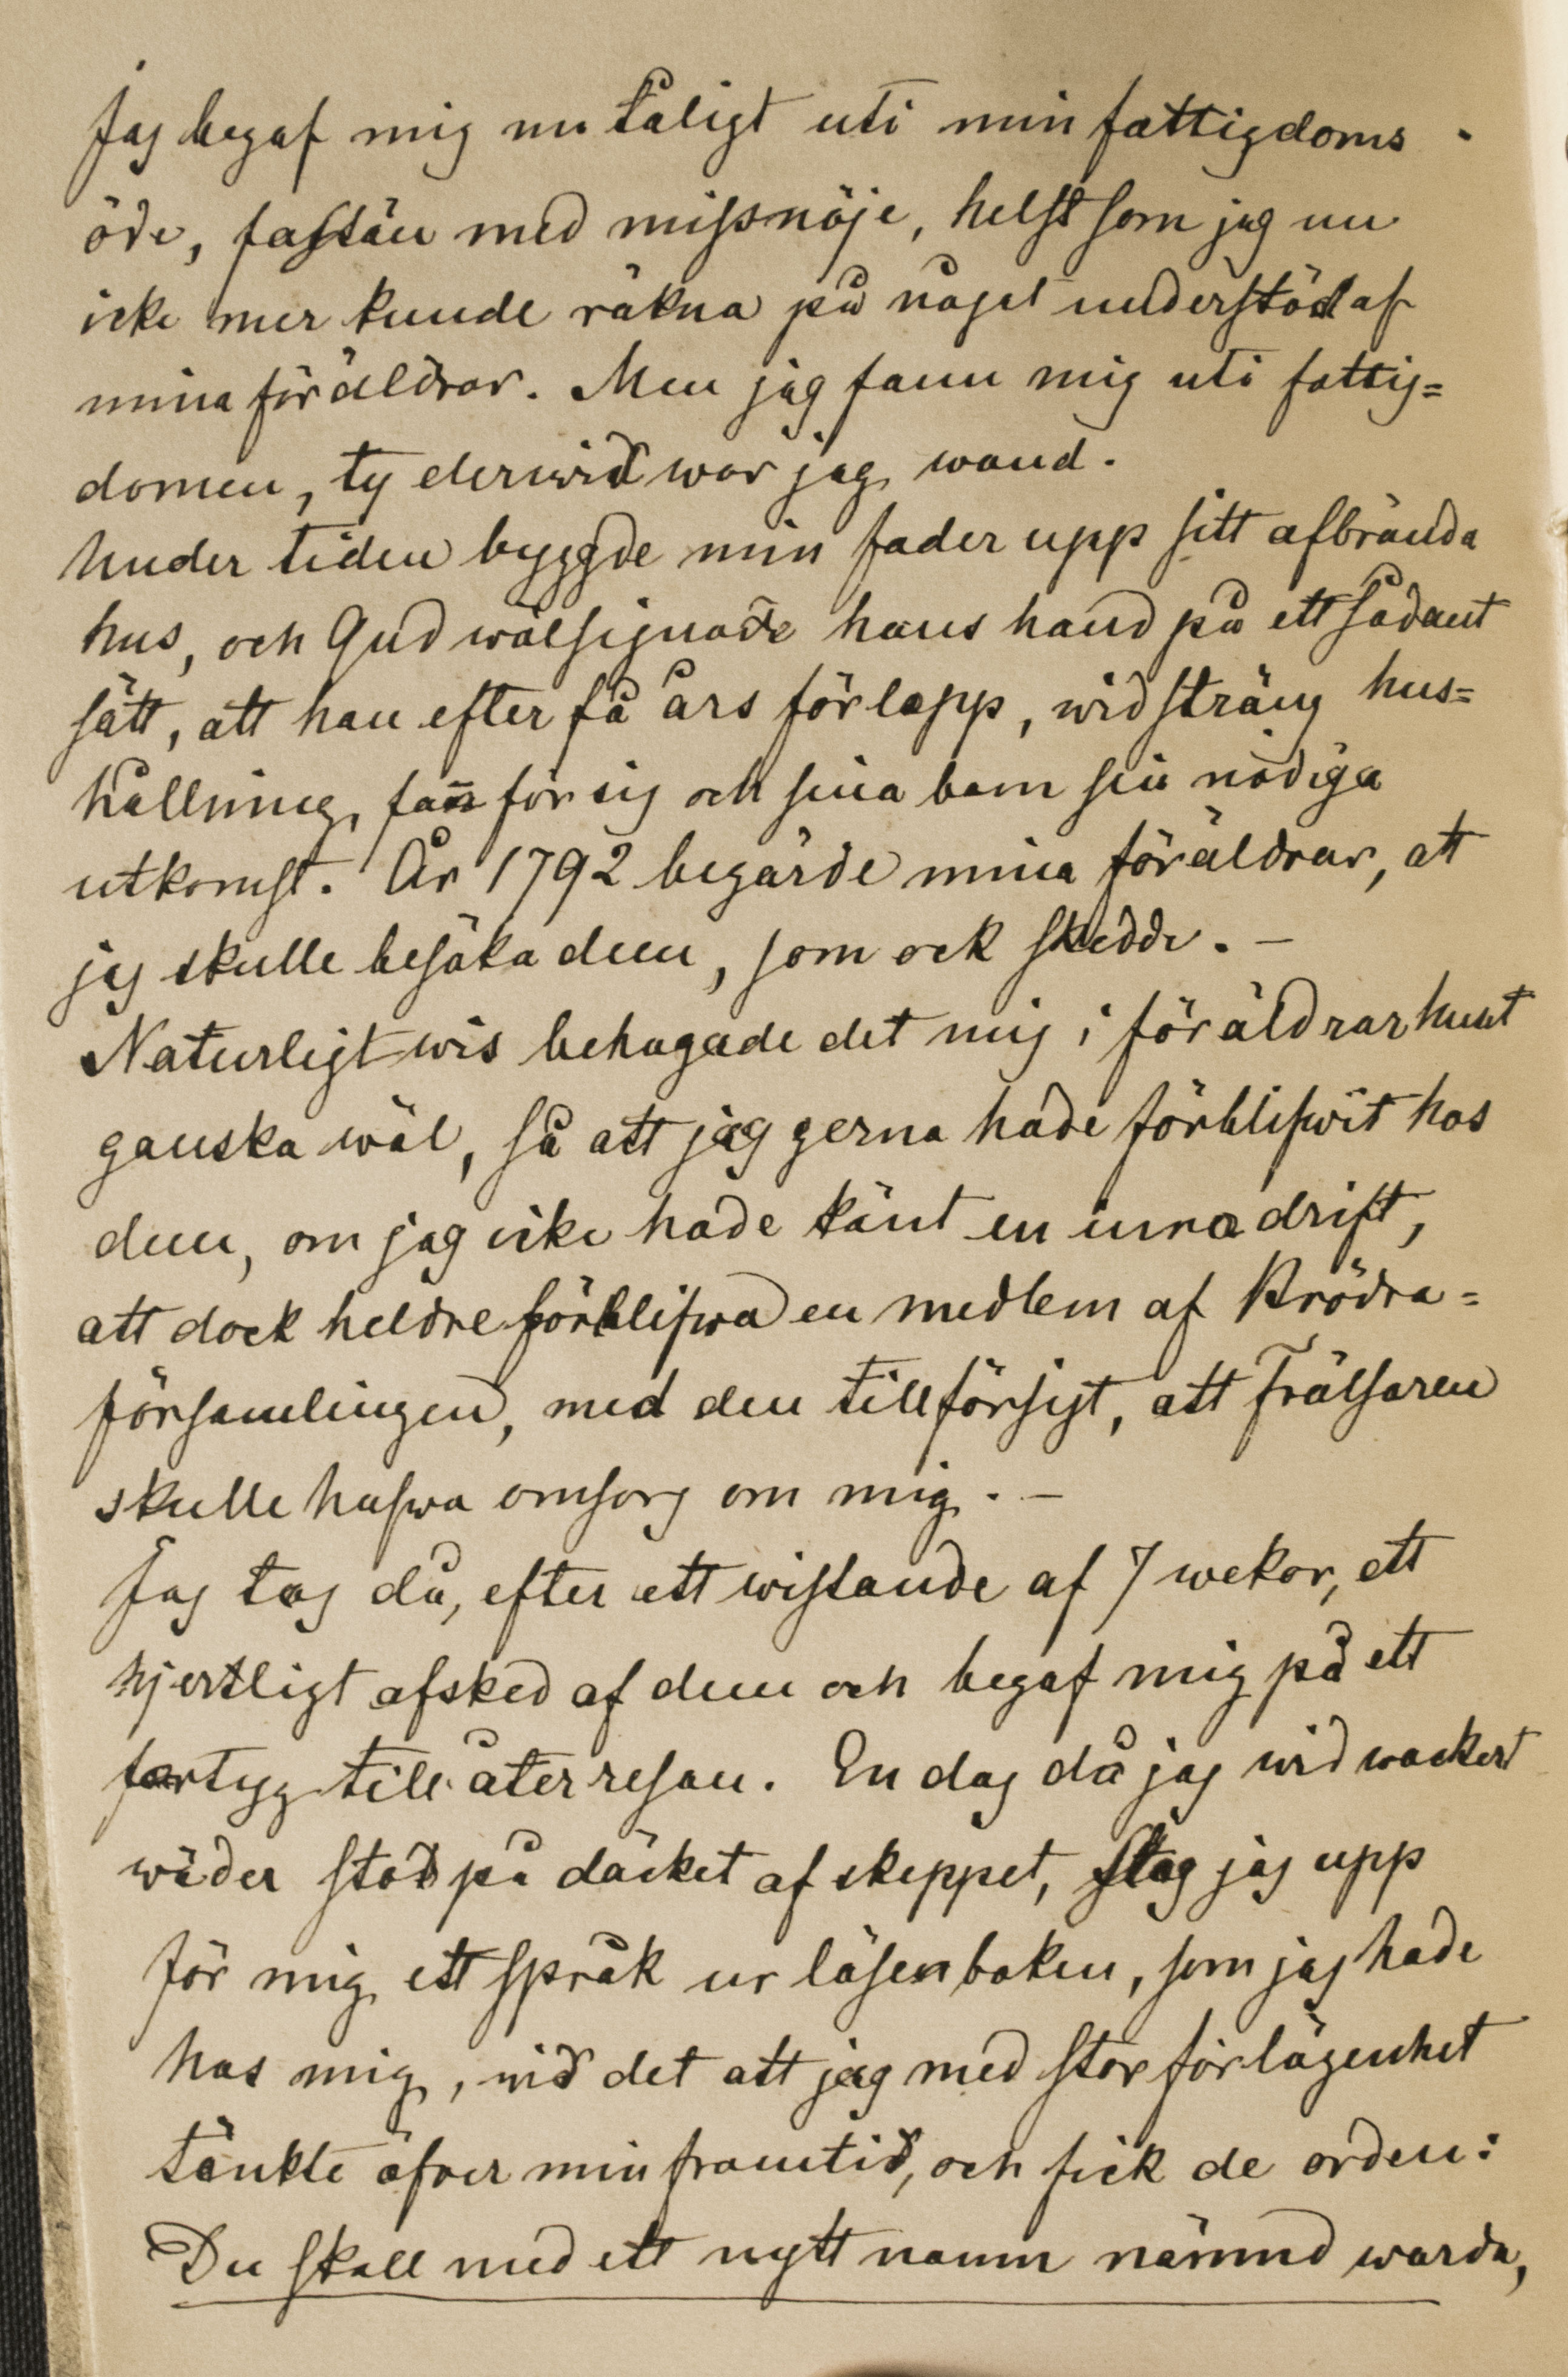 Jag begaf mig nu tåligt uti min fattigdoms
öde, fastän med missnöje, helst som jag nu
icke mer kunde räkna på något understöd af
mina föräldrar. Men jag fann mig uti fattig=
domen, ty derwid war jag wand.
Under tiden byggde min fader upp sitt afbrända
hus, och Gud wälsignade hans hand på ett sådant
sätt, att han efter få års förlopp, wid sträng hus=
hållning, fan̄ för sig och sina barn sin nödiga
utkomst. År 1792 begärde mina föräldrar, att
jag skulle besöka dem, som ock skedde. –
Naturligtwis behagade det mig i föräldrarhuset
ganska wäl, så att jag gerna hade förblifwit hos
dem, om jag icke hade känt en inre drift,
att dock heldre förblifwa en medlem af Brödra=
församlingen, med den tillförsigt, att Frälsaren
skulle hafwa omsorg om mig. –
Jag tog då, efter ett wistande af 7 wekor, ett
hjertligt afsked af dem och begaf mig på ett
fartyg till återresan. En dag då jag wid wackert
wäder stod på däcket af skeppet, slog jag upp
för mig ett språk ur lösenboken, som jag hade
hos mig, wid det att jag med stor förlägenhet
tänkte öfwer min framtid, och fick de orden:
Du skall med ett nytt namn nämnd warda,